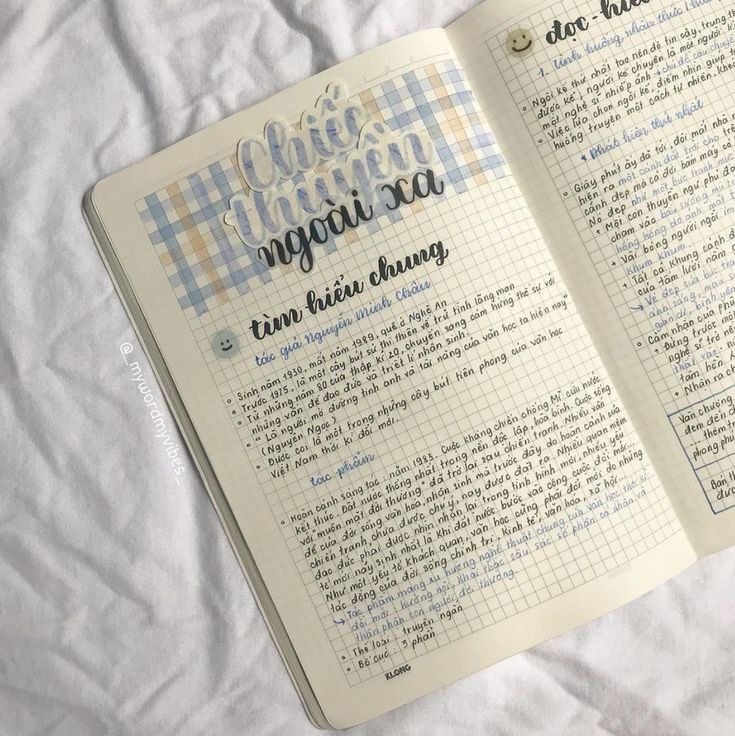 Chiếc
thuyền
ngoài xa
tìm hiểu chung
tác giả Nguyễn Minh Châu
• Sinh năm 1930, mất năm 1989, quê ở Nghệ An
• Trước 1975, là một cây bút sử thi thiên về trữ tình lãng mạn
• Từ những năm 80 của thập kỉ 20, chuyển sang cảm hứng thế sự với
những vấn đề đạo đức và triết lí nhân sinh.
• "Là người mở đường tinh anh và tài năng của văn học ta hiện nay"
(Nguyên Ngọc)
• Được coi là một trong những cây bút tiên phong của văn học
Việt Nam thời kì đổi mới.
tác phẩm
• Hoàn cảnh sáng tác: năm 1983. Cuộc kháng chiến chống Mĩ cứu nước
kết thúc. Đất nước thống nhất trong nền độc lập, hoà bình. Cuộc sống
với muôn mặt đời thường đã trở lại sau chiến tranh. Nhiều vấn
đề của đời sống văn hoá, nhân sinh mà trước đây do hoàn cảnh
chiến tranh chưa được chú ý, nay được đặt ra. Nhiều quan niệm
đạo đức phải được nhìn nhận lại trong tình hình mới, nhiều yếu
tố mới nảy sinh nhất là khi đất nước bước vào công cuộc đổi mới...
Như một yếu tố khách quan, văn học cũng phải đổi mới do những
tác động của đời sống chính trị, kinh tế, văn hóa, xã hội.
→ Tác phẩm mang xu hướng nghệ thuật chung của văn học thời kì
đổi mới: hướng nội, khai thác sâu sắc số phận cá nhân và
thân phận con người đời thường.
• Thể loại: truyện ngắn
• Bố cục: 3 phần
KLONG
@_mywordmyvibes_
đọc-hiể
1. Tình huống nhận thức
• Ngôi kể thứ nhất tạo nên độ tin cậy, trung th
được kể; người kể chuyện là một người
một nghệ sĩ nhiếp ảnh → chủ đề câu chuyện
• Việc lựa chọn ngôi kể, điểm nhìn giúp
huống truyện một cách tự nhiên, khé
* Phát hiện thứ nhất
• Giây phút ấy đã tới, đôi mắt nhà
hiện ra một cảnh đắt trời cho trê
cảnh đẹp mà cả đời bấm máy có
Nó đẹp như một bức tranh mực
+ Một con thuyền ngư phủ đ
chạm vào
+ Vài bóng người ngồi im
khum khum.
+ Tất cả khung cảnh đ
của tấm lưới nằm
→ Vẻ đẹp của bức tr
ánh sáng, màu
giản dị, bình yên
• Cảm nhận của ph
+ Đứng trước mộ
nghệ sĩ trở nên
thắt vào.
tâm hồn
+ Nhận ra ch
Văn chương
đem đến ch
thêm tr
phong phú
Bản th
được